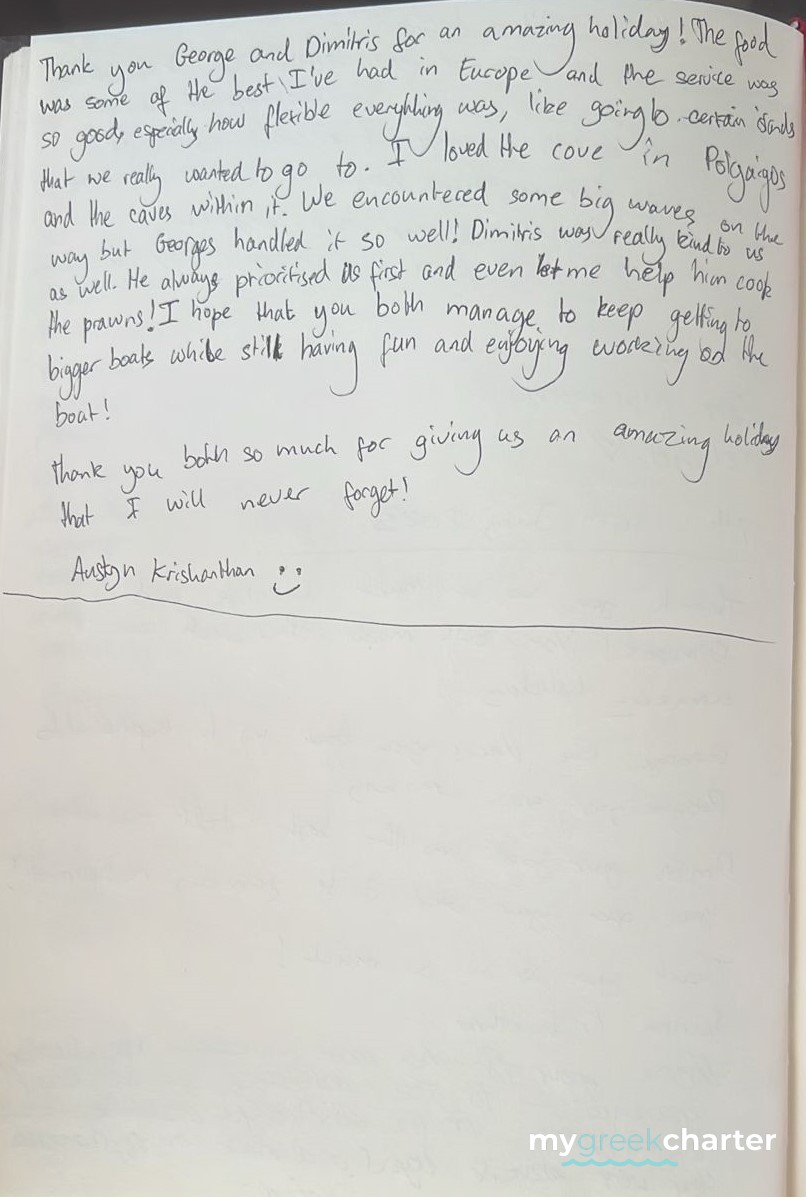 Thank you George and Dimitris for an amazing holiday! The food
was some of the best I've had in Europe and the service was
so good, especially how flexible everything was, like going to certain islands
that we really wanted to go to. I loved the cove in Polgaigos
and the caves within it. We encountered some big waves on the
way but Georges handled it so well! Dimitris was really kind to us
as well. He always prioritised us first and even let me help him cook
the prawns! I hope that you both manage to keep getting to
bigger boats while still having fun and enjoying working od the
boat!
thank you both so much for giving us an amazing holiday
that I will never forget!
Austyn Krishanthan
mygreekcharter